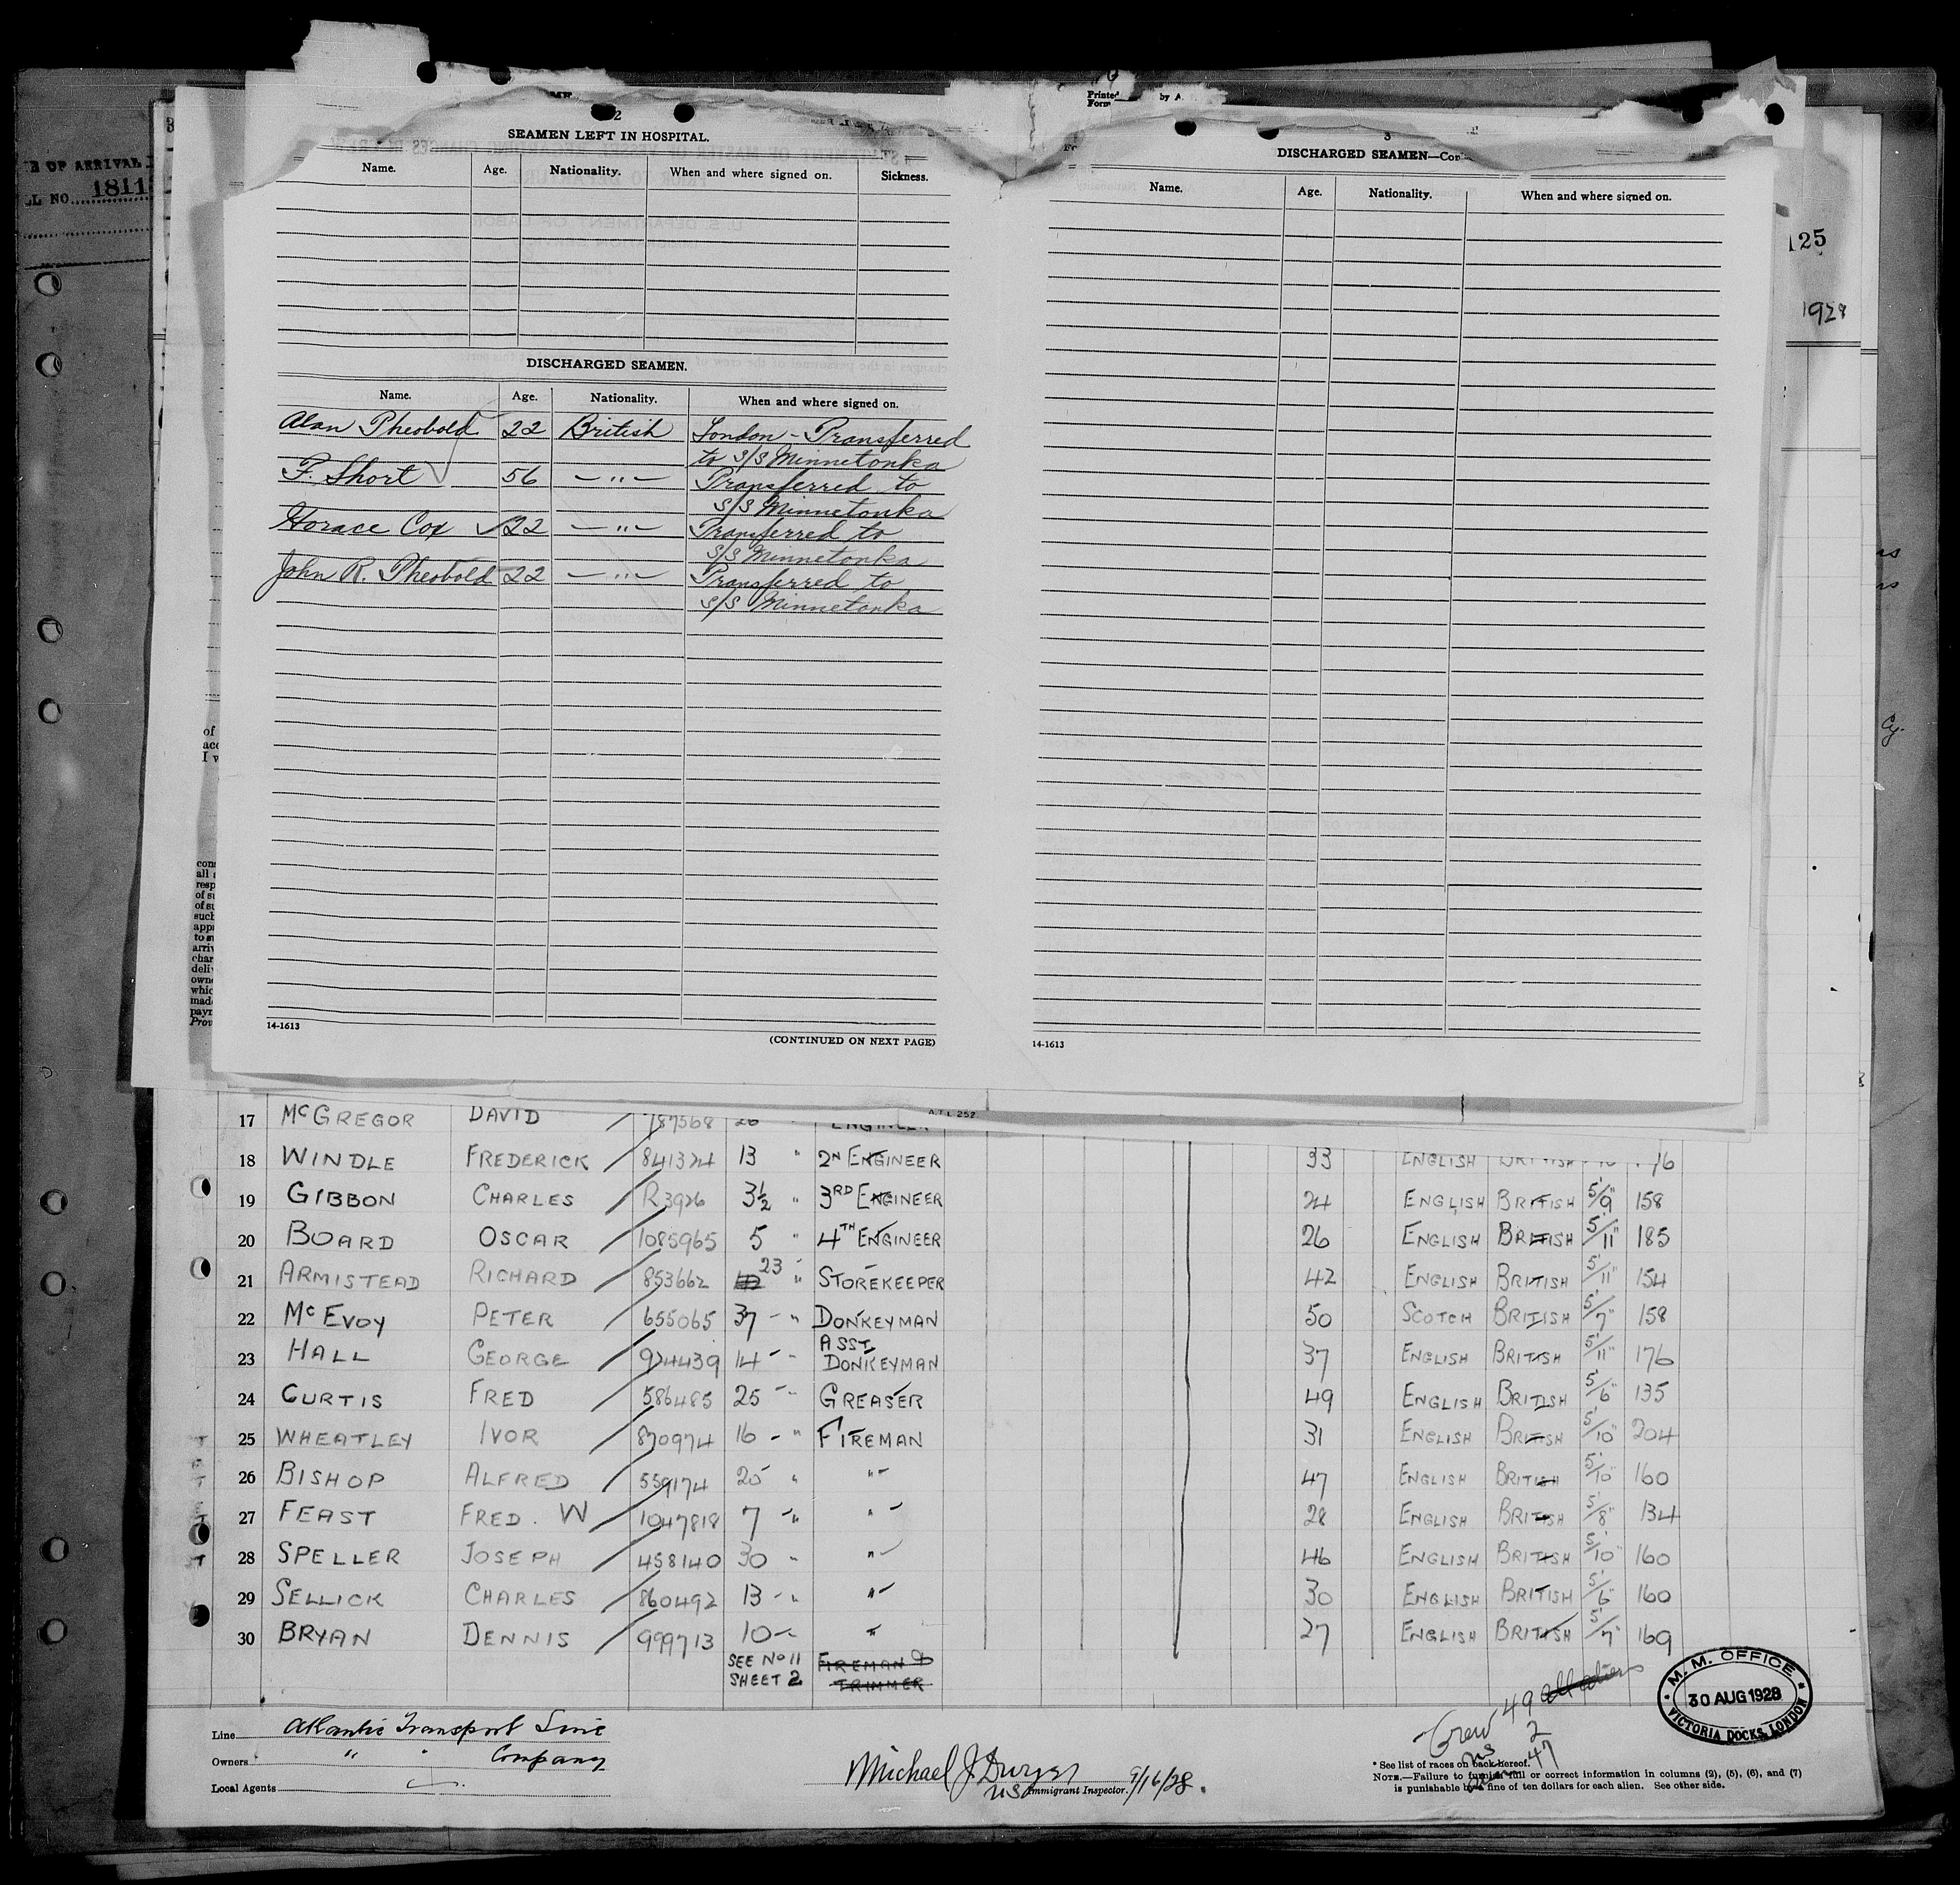 E OF ARRIVAL
LL NO. 1811
2
SEAMEN LEFT IN HOSPITAL.
Name. Age. Nationality. When and where signed on. Sickness.
DISCHARGED SEAMEN.
Name. Age. Nationality. When and where signed on.
Alan Theobold 22 British London - Transferred
to S/S Minnetonka
F. Short 56 — " — Transferred to
S/S Minnetonka
Horace Cox 22 — " — Transferred to
S/S Minnetonka
John R. Theobold 22 — " — Transferred to
S/S Minnetonka
14-1613
(CONTINUED ON NEXT PAGE)
Printed by A.
Form
3
DISCHARGED SEAMEN—Con
Name. Age. Nationality. When and where signed on.
14-1613
125
1928
Cy.
of
acc
I w
con
all
resp
of su
of su
such
app
to
arriv
char
deli
own
whic
mad
payn
Prov
A.T.L. 252
17 McGREGOR DAVID 187568 26 ENGINEER
18 WINDLE FREDERICK 841324 13 " 2ND ENGINEER 33 ENGLISH BRITISH 176
19 GIBBON CHARLES R3926 3½ " 3RD ENGINEER 24 ENGLISH BRITISH 5'/9" 158
20 BOARD OSCAR 1085965 5 " 4TH ENGINEER 26 ENGLISH BRITISH 5'/11" 185
21 ARMISTEAD RICHARD 853662 23 " STOREKEEPER 42 ENGLISH BRITISH 5'/11" 154
22 McEVOY PETER 655065 37 - " DONKEYMAN 50 SCOTCH BRITISH 5'/7" 158
23 HALL GEORGE 924439 14 - " ASST DONKEYMAN 37 ENGLISH BRITISH 5'/11" 176
24 CURTIS FRED 586485 25 - " GREASER 49 ENGLISH BRITISH 5'/6" 135
25 WHEATLEY IVOR 870974 16 - " FIREMAN 31 ENGLISH BRITISH 5'/10" 204
26 BISHOP ALFRED 559174 25 " " 47 ENGLISH BRITISH 5'/10" 160
27 FEAST FRED. W 1047818 7 " " 28 ENGLISH BRITISH 5'/8" 134
28 SPELLER JOSEPH 458140 30 " " 46 ENGLISH BRITISH 5'/10" 160
29 SELLICK CHARLES 860492 13 - " " 30 ENGLISH BRITISH 5'/6" 160
30 BRYAN DENNIS 999713 10 - " " 27 ENGLISH BRITISH 5'/7" 169
SEE No 11 FIREMAN &
SHEET 2 TRIMMER
M. M. OFFICE
30 AUG 1928
VICTORIA DOCKS, LONDON
Line Atlantic Transport Line
Owners " " Company
Local Agents
Michael J
US Immigrant Inspector. 9/16/28.
Crew 49
2
47
* See list of races on back hereof.
NOTE.—Failure to furnish full or correct information in columns (2), (5), (6), and (7)
is punishable by a fine of ten dollars for each alien. See other side.